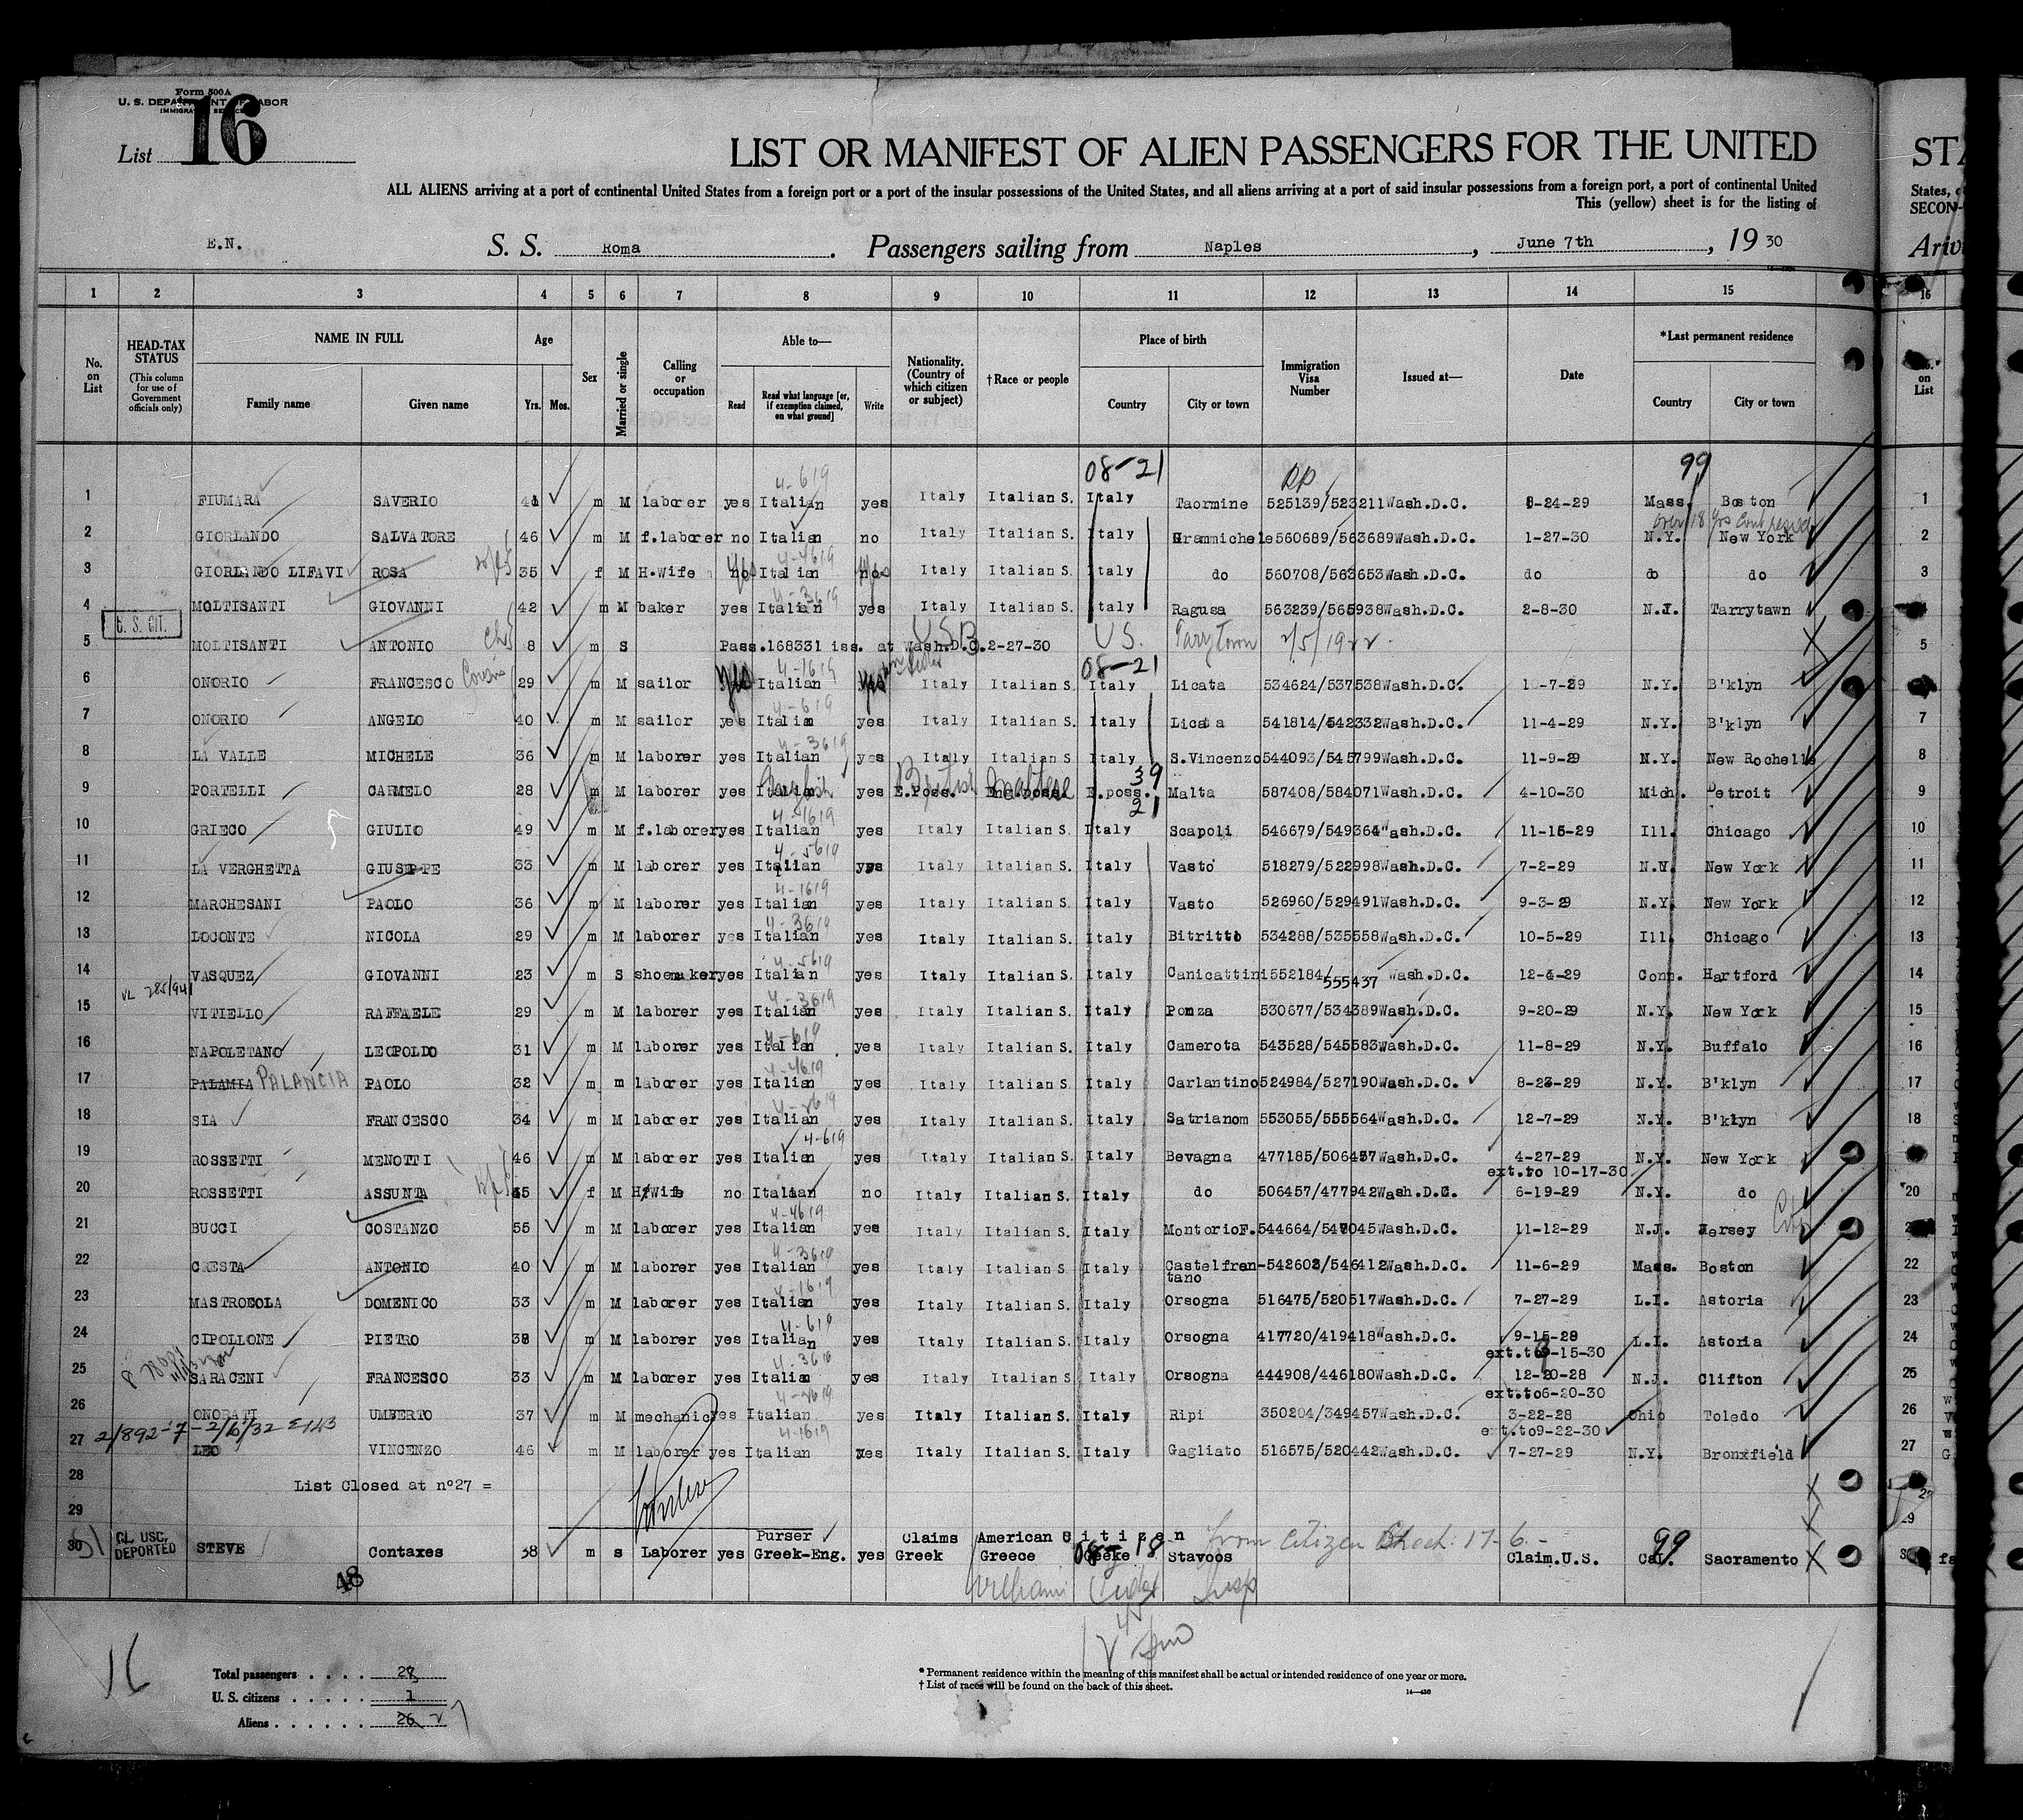 Form 500A
U. S. DEPARTMENT OF LABOR
IMMIGRATION SERVICE
List 16
LIST OR MANIFEST OF ALIEN PASSENGERS FOR THE UNITED
STA
ALL ALIENS arriving at a port of continental United States from a foreign port or a port of the insular possessions of the United States, and all aliens arriving at a port of said insular possessions from a foreign port, a port of continental United
States,
This (yellow) sheet is for the listing of
SECON
E.N. S. S. Roma. Passengers sailing from Naples, June 7th, 1930
Arivi
1 2 3 4 5 6 7 8 9 10 11 12 13 14 15 16
No. on List
HEAD-TAX STATUS
(This column for use of Government officials only)
NAME IN FULL
Family name Given name
Age
Yrs. Mos.
Sex
Married or single
Calling or occupation
Able to—
Read Read what language [or, if exemption claimed, on what ground] Write
Nationality. (Country of which citizen or subject)
†Race or people
Place of birth
Country City or town
Immigration Visa Number
Issued at—
Date
*Last permanent residence
Country City or town
No. on List
08-21 99
4-619
1 FIUMARA SAVERIO 41 m M laborer yes Italian yes Italy Italian S. Italy Taormine 525139/523211 Wash.D.C. 8-24-29 Mass. Boston 1
over 18 yrs
2 GIORLANDO SALVATORE 46 m M f.laborer no Italian no Italy Italian S. Italy Grammichele 560689/563689 Wash.D.C. 1-27-30 N.Y. New York 2
4-4619
3 GIORLANDO LIFAVI ROSA wife 35 f M H.Wife no yes Italian no yes Italy Italian S. Italy do 560708/563653 Wash.D.C. do do do 3
4-3619
4 MOLTISANTI GIOVANNI 42 m M baker yes Italian yes Italy Italian S. Italy Ragusa 563239/565938 Wash.D.C. 2-8-30 N.Y. Tarrytawn
U. S. CIT.
5 MOLTISANTI ANTONIO 8 m S Pass.168331 iss. at Wash.D.C. 2-27-30 U.S.B U.S. Tarrytown 2/5/1922 5
4-1619 08-21
6 ONORIO FRANCESCO Cousin 29 m M sailor yes Italian yes Italy Italian S Italy Licata 534624/537538 Wash.D.C. 10-7-29 N.Y. B'klyn
4-619
7 ONORIO ANGELO 40 m M sailor yes Italian yes Italy Italian S. Italy Licata 541814/542332 Wash.D.C. 11-4-29 N.Y. B'klyn 7
4-3619
8 LA VALLE MICHELE 36 m M laborer yes Italian yes Italy Italian S Italy S.Vincenzo 544093/545799 Wash.D.C. 11-9-29 N.Y. New Rochelle 8
English British Maltese 39 21
9 PORTELLI CARMELO 28 m M laborer yes Italian yes E.Poss. Eng.poss. E.poss. Malta 587408/584071 Wash.D.C. 4-10-30 Mich. Detroit 9
4-4619
10 GRIECO GIULIO 49 m M f.laborer yes Italian yes Italy Italian S. Italy Scapoli 546679/549364 Wash.D.C. 11-15-29 Ill. Chicago 10
4-5619
11 LA VERGHETTA GIUSEPPE 33 m M laborer yes Italian yes Italy Italian S. Italy Vasto 518279/522998 Wash.D.C. 7-2-29 N.Y. New York 11
4-1619
12 MARCHESANI PAOLO 36 m M laborer yes Italian yes Italy Italian S. Italy Vasto 526960/529491 Wash.D.C. 9-3-29 N.Y. New York 12
4-3619
13 LOCONTE NICOLA 29 m M laborer yes Italian yes Italy Italian S. Italy Bitritto 534288/535558 Wash.D.C. 10-5-29 Ill. Chicago 13
4-5619
14 VASQUEZ GIOVANNI 23 m S shoemaker yes Italian yes Italy Italian S. Italy Canicattini 552184/555437 Wash.D.C. 12-4-29 Conn. Hartford 14
4-3619
15 VITIELLO RAFFAELE 29 m M laborer yes Italian yes Italy Italian S. Italy Ponza 530677/534389 Wash.D.C. 9-20-29 N.Y. New York 15
4-619
16 NAPOLETANO LEOPOLDO 31 m M laborer yes Italian yes Italy Italian S. Italy Camerota 543528/545583 Wash.D.C. 11-8-29 N.Y. Buffalo 16
4-4619
17 PALAMIA PALANCIA PAOLO 32 m m laborer yes Italian yes Italy Italian S. Italy Carlantino 524984/527190 Wash.D.C. 8-23-29 N.Y. B'klyn 17
18 SIA FRANCESCO 34 m M laborer yes Italian yes Italy Italian S. Italy Satrianom 553055/555564 Wash.D.C. 12-7-29 N.Y. B'klyn 18
4-619
19 ROSSETTI MENOTTI 46 m M laborer yes Italian yes Italy Italian S. Italy Bevagna 477185/506457 Wash.D.C. 4-27-29 N.Y. New York
ext.to 10-17-30
20 ROSSETTI ASSUNTA wife 45 f M H/Wife no Italian no Italy Italian S. Italy do 506457/477942 Wash.D.C. 6-19-29 N.Y. do 20
4-4619
21 BUCCI COSTANZO 55 m M laborer yes Italian yes Italy Italian S. Italy MontorioF. 544664/549045 Wash.D.C. 11-12-29 N.J. Jersey City
4-3619
22 CRESTA ANTONIO 40 m M laborer yes Italian yes Italy Italian S. Italy Castelfren-tano 542602/546412 Wash.D.C. 11-6-29 Mass. Boston 22
4-1619
23 MASTROCOLA DOMENICO 33 m M laborer yes Italian yes Italy Italian S. Italy Orsogna 516475/520517 Wash.D.C. 7-27-29 L.I. Astoria 23
4-619
24 CIPOLLONE PIETRO 38 m M laborer yes Italian yes Italy Italian S. Italy Orsogna 417720/419418 Wash.D.C. 9-15-28 L.I. Astoria 24
ext.to 9-15-30
4-3619
25 SARACENI FRANCESCO 33 m M laborer yes Italian yes Italy Italian S. Italy Orsogna 444908/446180 Wash.D.C. 12-20-28 N.J. Clifton 25
ext.to 6-20-30
26 ONORATI UMBERTO 37 m M mechanic yes Italian yes Italy Italian S. Italy Ripi 350204/349457 Wash.D.C. 3-22-28 Ohio Toledo 26
ext.to 9-22-30
4-1619
27 LEO VINCENZO 46 m M laborer yes Italian yes Italy Italian S. Italy Gagliato 516575/520442 Wash.D.C. 7-27-29 N.Y. Bronxfield 27
28
List Closed at n°27 =
29
Purser Claims American Citizen from Citizen 17-6-
30 CL. USC. DEPORTED STEVE Contaxes 38 m s Laborer yes Greek-Eng. yes Greek Greece 08-18 Stavoos Claim.U.S. Cal. 99 Sacramento
48
16
Total passengers
U. S. citizens 1
Aliens 26 27
* Permanent residence within the meaning of this manifest shall be actual or intended residence of one year or more.
† List of races will be found on the back of this sheet.